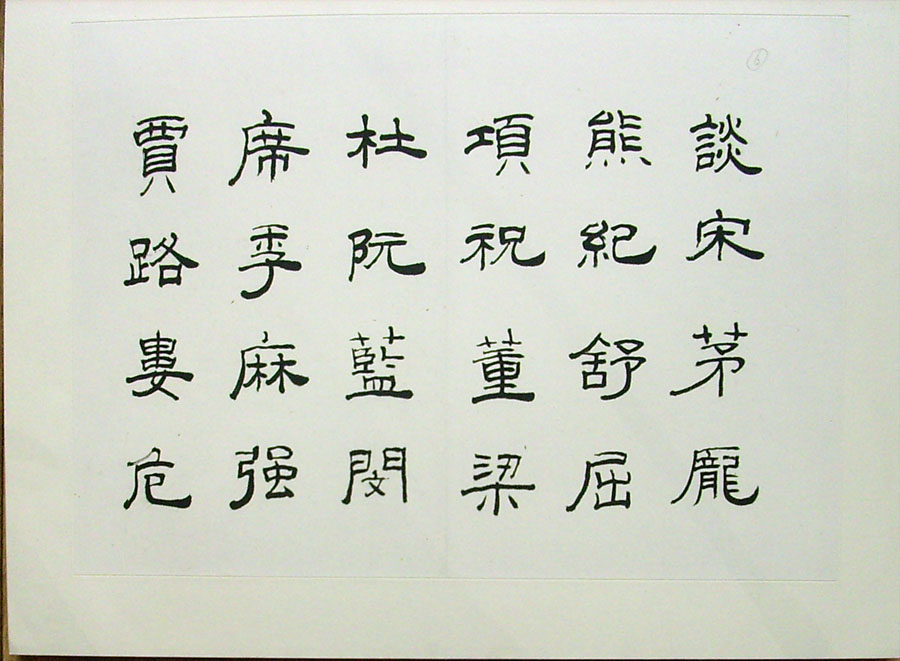 談宋茅龐
熊紀舒屈
項祝董梁
杜阮藍閔
席季麻强
賈路婁危
6